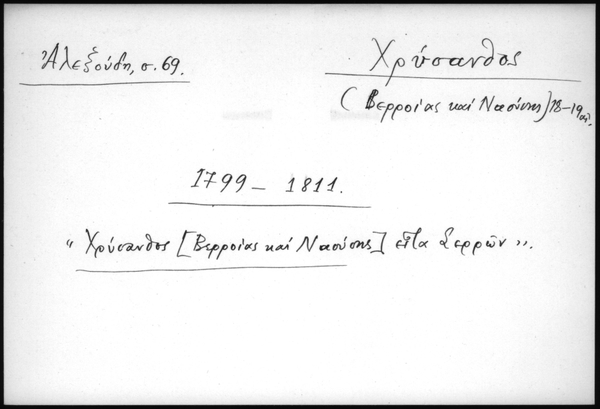 Ἀλεξούδη, σ. 69.
Χρύσανθος
(Βερροίας καὶ Ναούσης) 18-19 αἰ.
1799 - 1811.
"Χρύσανθος [Βερροίας καὶ Ναούσης] εἶτα Σερρῶν".